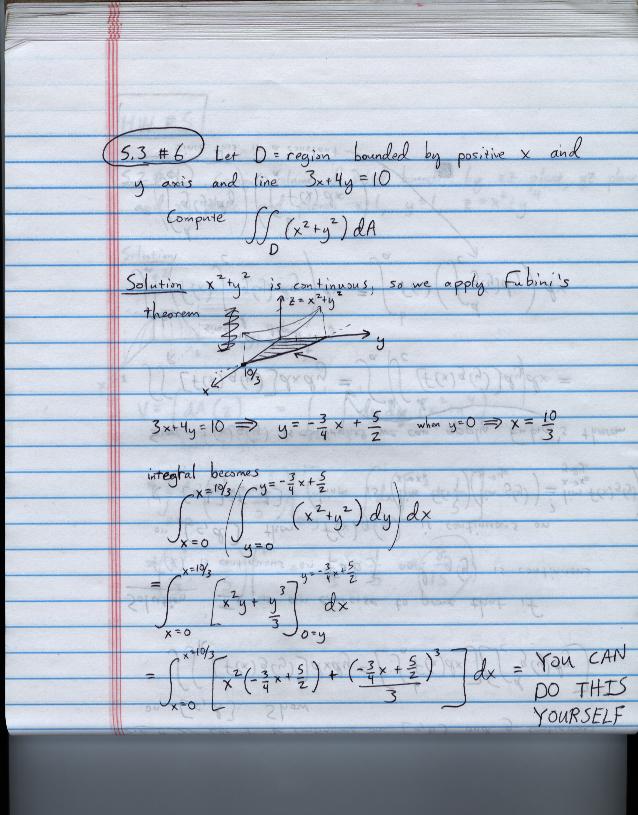 5.3 #6 Let D = region bounded by positive x and
y axis and line 3x+4y=10
Compute ∬_D (x²+y²) dA
Solution x²+y² is continuous, so we apply Fubini's
theorem
z = x²+y²
y
10/3
x
3x+4y=10 ⇒ y = -3/4 x + 5/2 when y=0 ⇒ x = 10/3
integral becomes
∫_{x=0}^{x=10/3} ( ∫_{y=0}^{y=-3/4 x+5/2} (x²+y²) dy ) dx
= ∫_{x=0}^{x=10/3} [ x²y + y³/3 ]_{0=y}^{y=-3/4 x+5/2} dx
= ∫_{x=0}^{x=10/3} [ x²(-3/4 x + 5/2) + (-3/4 x + 5/2)³/3 ] dx = YOU CAN
DO THIS
YOURSELF